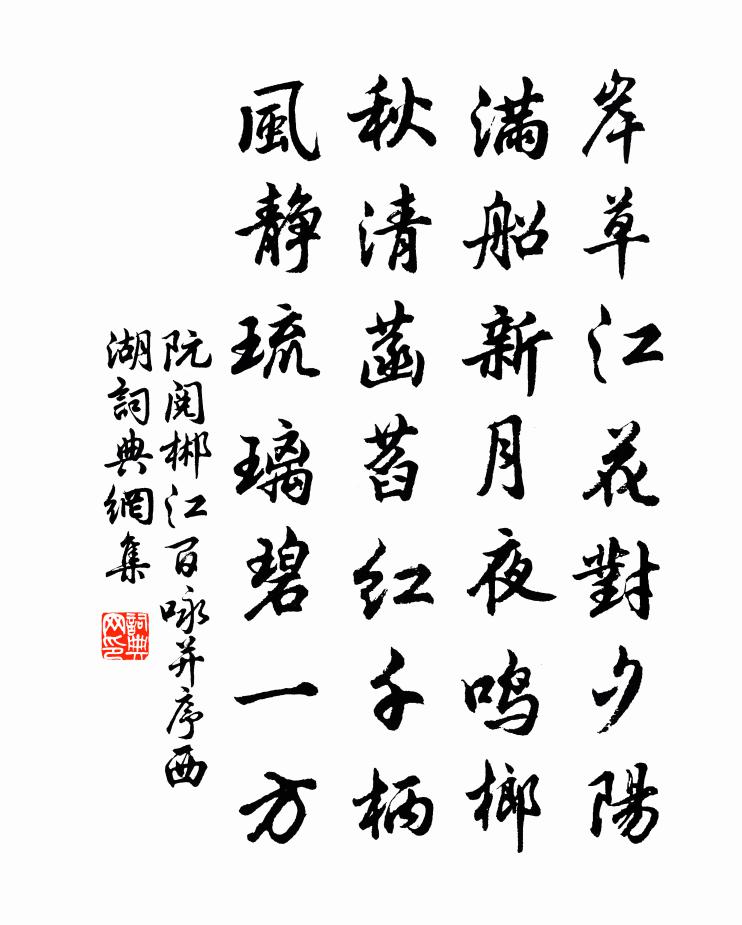 岸草江花對夕陽
滿船新月夜鳴榔
秋清菡萏紅千柄
風靜琉璃碧一方
阮閱郴江百咏并序西
湖詞典網集
詞典
网印